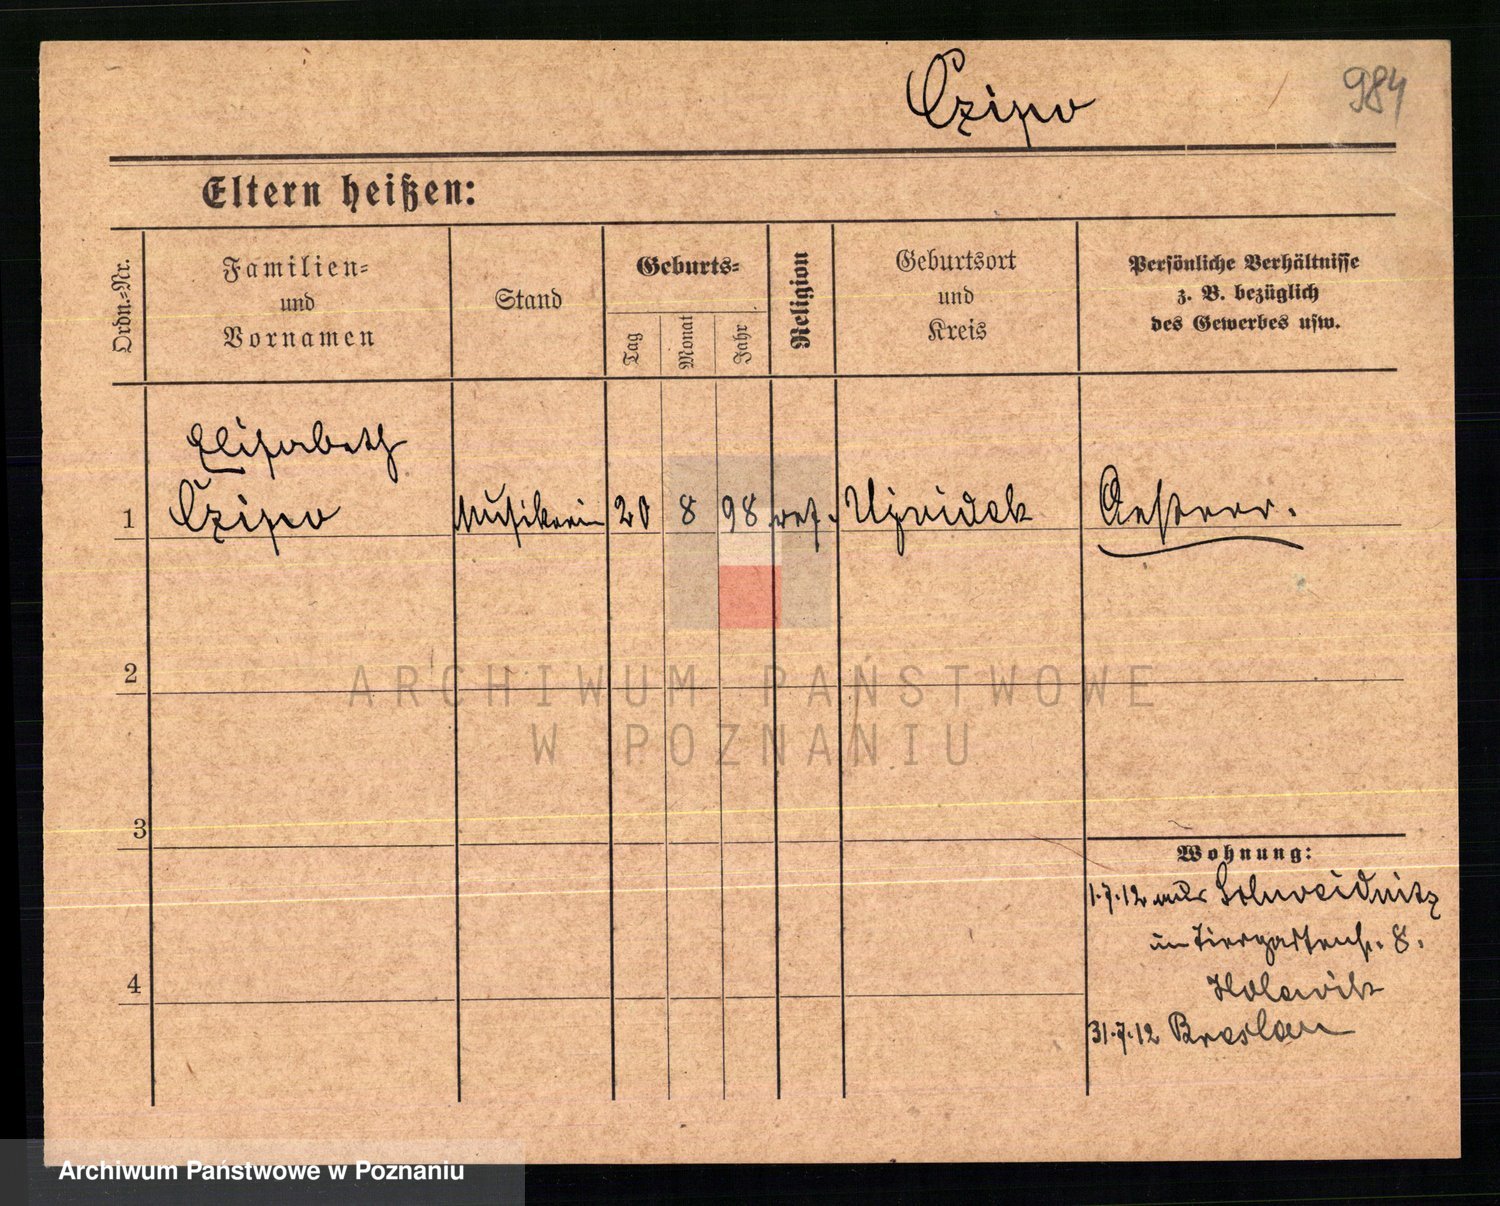 Czipo
984
Eltern heißen:
Ordn.-Nr.
Familien-
und
Vornamen
Stand
Geburts-
Tag
Monat
Jahr
Religion
Geburtsort
und
Kreis
Persönliche Verhältnisse
z. B. bezüglich
des Gewerbes usw.
Elisabeth
1 Czipo Musikerin 20 8 98 ref. Ujvidek Oesterr.
2
ARCHIWUM PAŃSTWOWE
W POZNANIU
3
Wohnung:
1.7.12 aus Schweidnitz
Tiergartenstr. 8.
4
31.7.12 Breslau
Archiwum Państwowe w Poznaniu